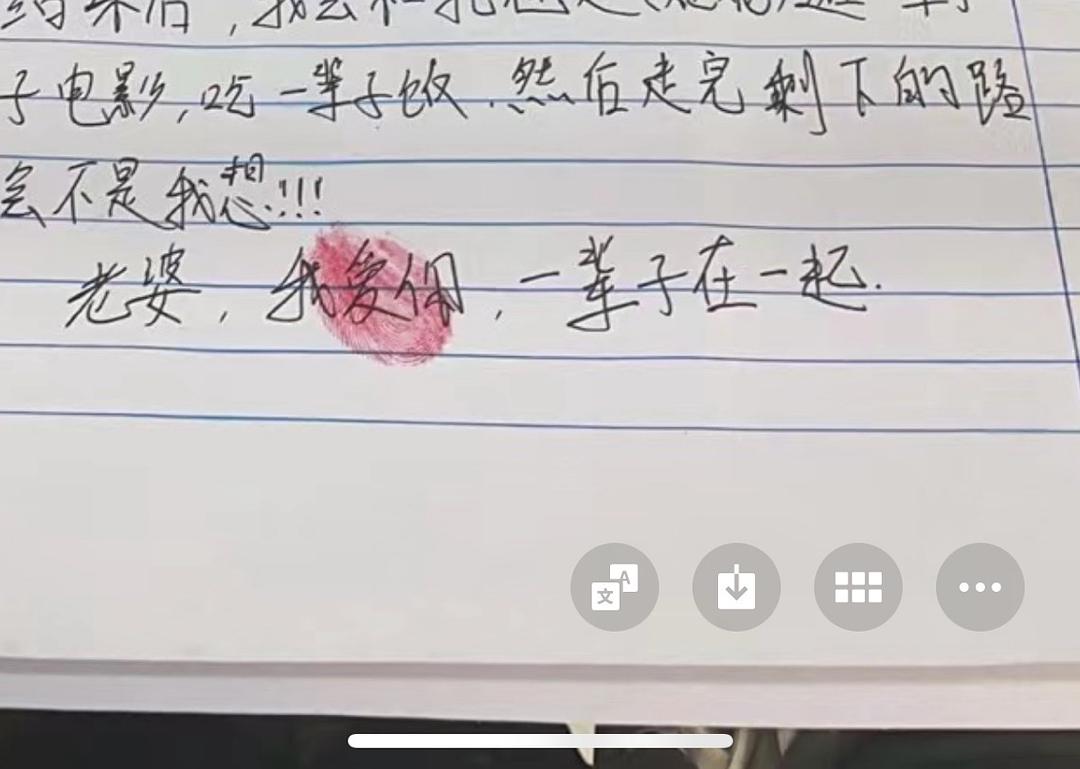 后,我会和我
子电影,吃一辈子饭.然后走完剩下的路
会不是我想!!!
老婆,我爱你,一辈子在一起.
文A